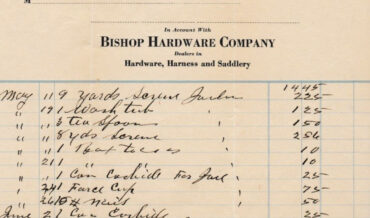 M
In Account With
BISHOP HARDWARE COMPANY
Dealers in
Hardware, Harness and Saddlery
1445
May 11 9 yards Screen 225
" 19 1 Wash tub " 125
" " 3 tea Spoons " 150
" " 8 yds Screen 256
" " 1 10
" 21 1 " " 10
" " 1 Can for 25
" 24 1 Cup " 75
" 26 10 # Nails " 50
June 21 Can 25